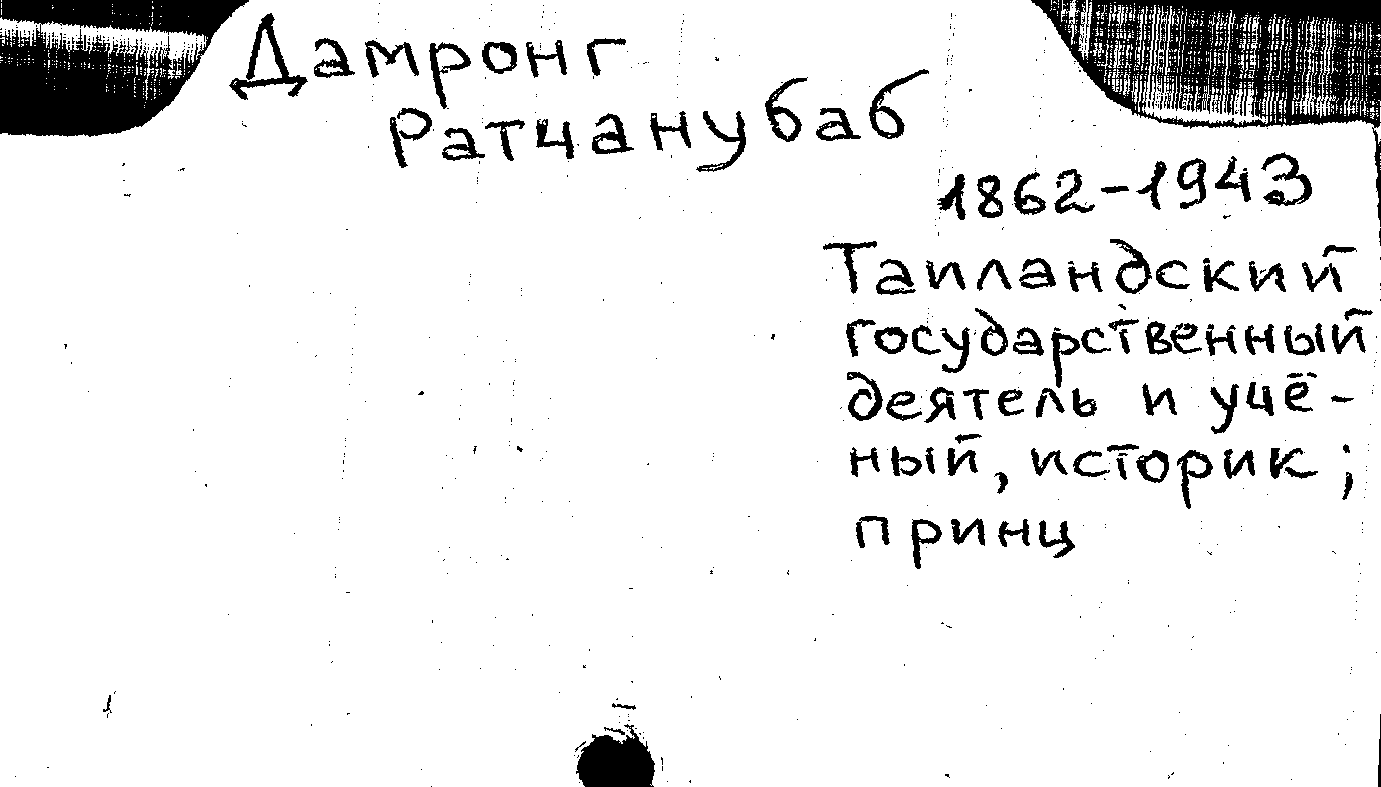 Дамронг
Ратчанубаб
1862-1943
Таиландский
государственный
деятель и учё-
ный, историк;
принц